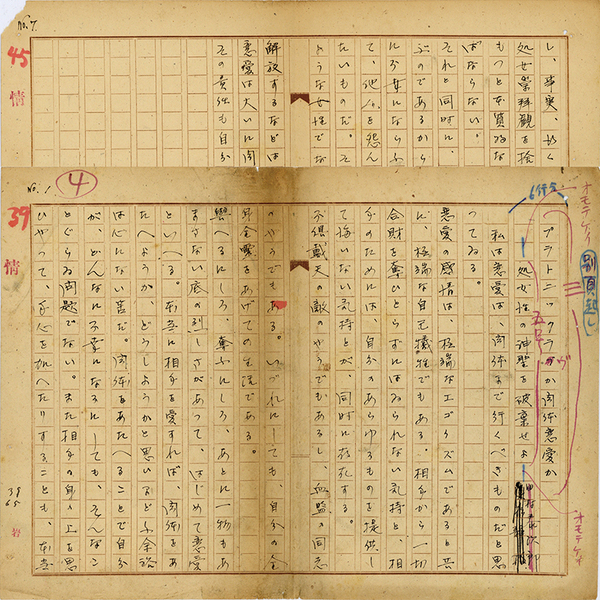 No.7
45
情
し、事実、
処女崇拝観を捨
もつと本質的な
ばならない。
それと同時に、
ぶのであるから
にお幸にならふ
て、他人を怨ん
たいものだ。そ
うな女性でな
解放するなどは
恋愛は大いに肉
その責任も自分
No.1
4
39
情
オモテケイ
別頁起し
6行分
プラトニックラヴか肉体恋愛か
処女性の神聖を破棄せよ
五号
オモテケイ
私は恋愛は、肉体まで行くべきものだと思
つてゐる。
恋愛の感情は、極端なエゴイズムであると共
に、極端な自己犠牲でもある。相手から一切
合財を奪ひとらずにはゐられない気持と、相
手のためには、自分のあらゆるものを提供し
て悔いない気持とが、同時に存在する。
不倶戴天の敵のやうでもあるし、血盟の同志
のやうでもある。いづれにしても自分の全
身全霊をあげての生活である。
与へるにしろ、奪ふにしろ、あとに一物もあ
まさない底の烈しさがあつて、はじめて恋愛
といへる。ほんとに相手を愛すれば、肉体をあ
たへようか、どうしようかと思いまどふ余裕
は心にない筈だ。肉体をあたへることで自分
が、どんなにお幸になるにしても、そんなこ
とぐらゐ問題でない。また相手の身の上を思
ひやつて、手心を加へたりすることも、ほんと
39
65